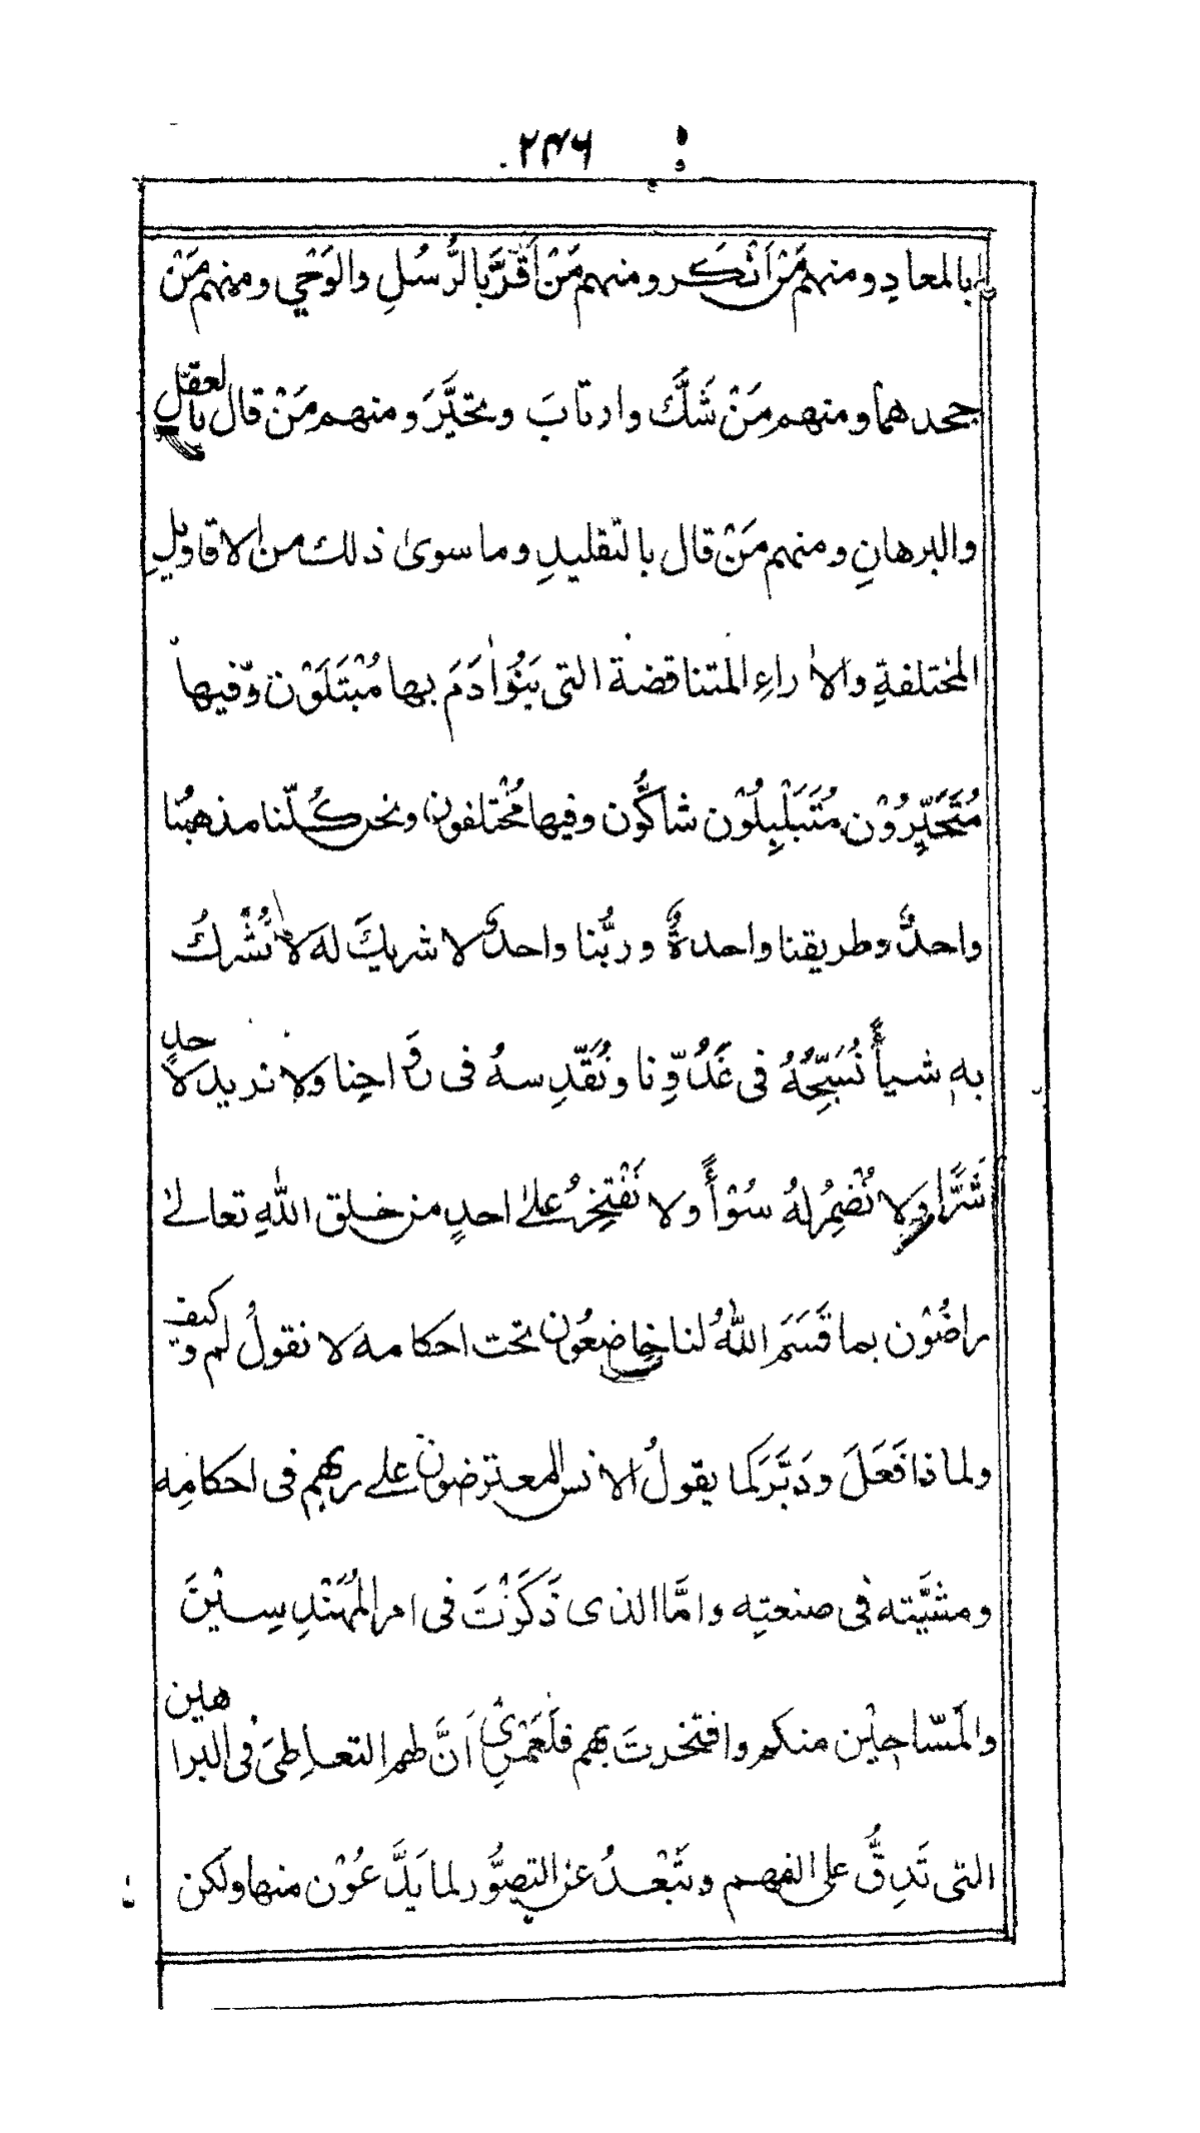 ۲۴۶
بالمعادِ ومنهم مَنْ اَنْكَر ومنهم مَنْ اَقَرَّ بالرُّسُلِ والوَحْيِ ومنهم مَنْ
جحدهما ومنهم مَنْ شَكَّ وارتابَ وتحيَّرَ ومنهم مَنْ قال بالعقلِ
والبرهانِ ومنهم مَنْ قال بالتقليدِ وما سوىٰ ذلك من الاقاويلِ
المختلفةِ والاٰراءِ المتناقضة التى بَنُوْاٰدَمَ بها مُبْتَلَوْن وفيها
مُتَحَيِّرُوْن مُتَبَلْبِلُوْن شاكُّون وفيها مُخْتلفون ونحن كُلّنا مذهبُنا
واحدٌ وطريقنا واحدةٌ وربُّنا واحدٌ لا شريكَ له لا نُشْرِكُ
به شيأً نُسَبِّحُهُ فى غَدُوِّنا ونُقَدِّسهُ فى رَوَاحِنا ولا نريد لاحدٍ
شَرًّا ولا نُضْمِرُ لهُ سُوْأً ولا نَفْتَخِرُ علىٰ احدٍ من خلق اللهِ تعالىٰ
راضُوْن بما قَسَمَ اللهُ لنا خاضعُون تحت احكامه لا نقولُ لم وكيف
ولماذا فَعَلَ ودَبَّرَ كما يقولُ الانس المعترضون على ربهم فى احكامِه
ومشيَّته فى صنعتِه وامَّا الذى ذَكَرْتَ فى امر المُهَنْدِسِيْنَ
والمَسّاحِيْن منكم وافتخرتَ بهم فلَعَمْرِىْ اَنَّ لهم التعاطِىَ فى البراهين
التى تَدِقُّ على الفهم وتَبْعدُ عن التصوُّر لما يَدَّعُوْن منها ولكن